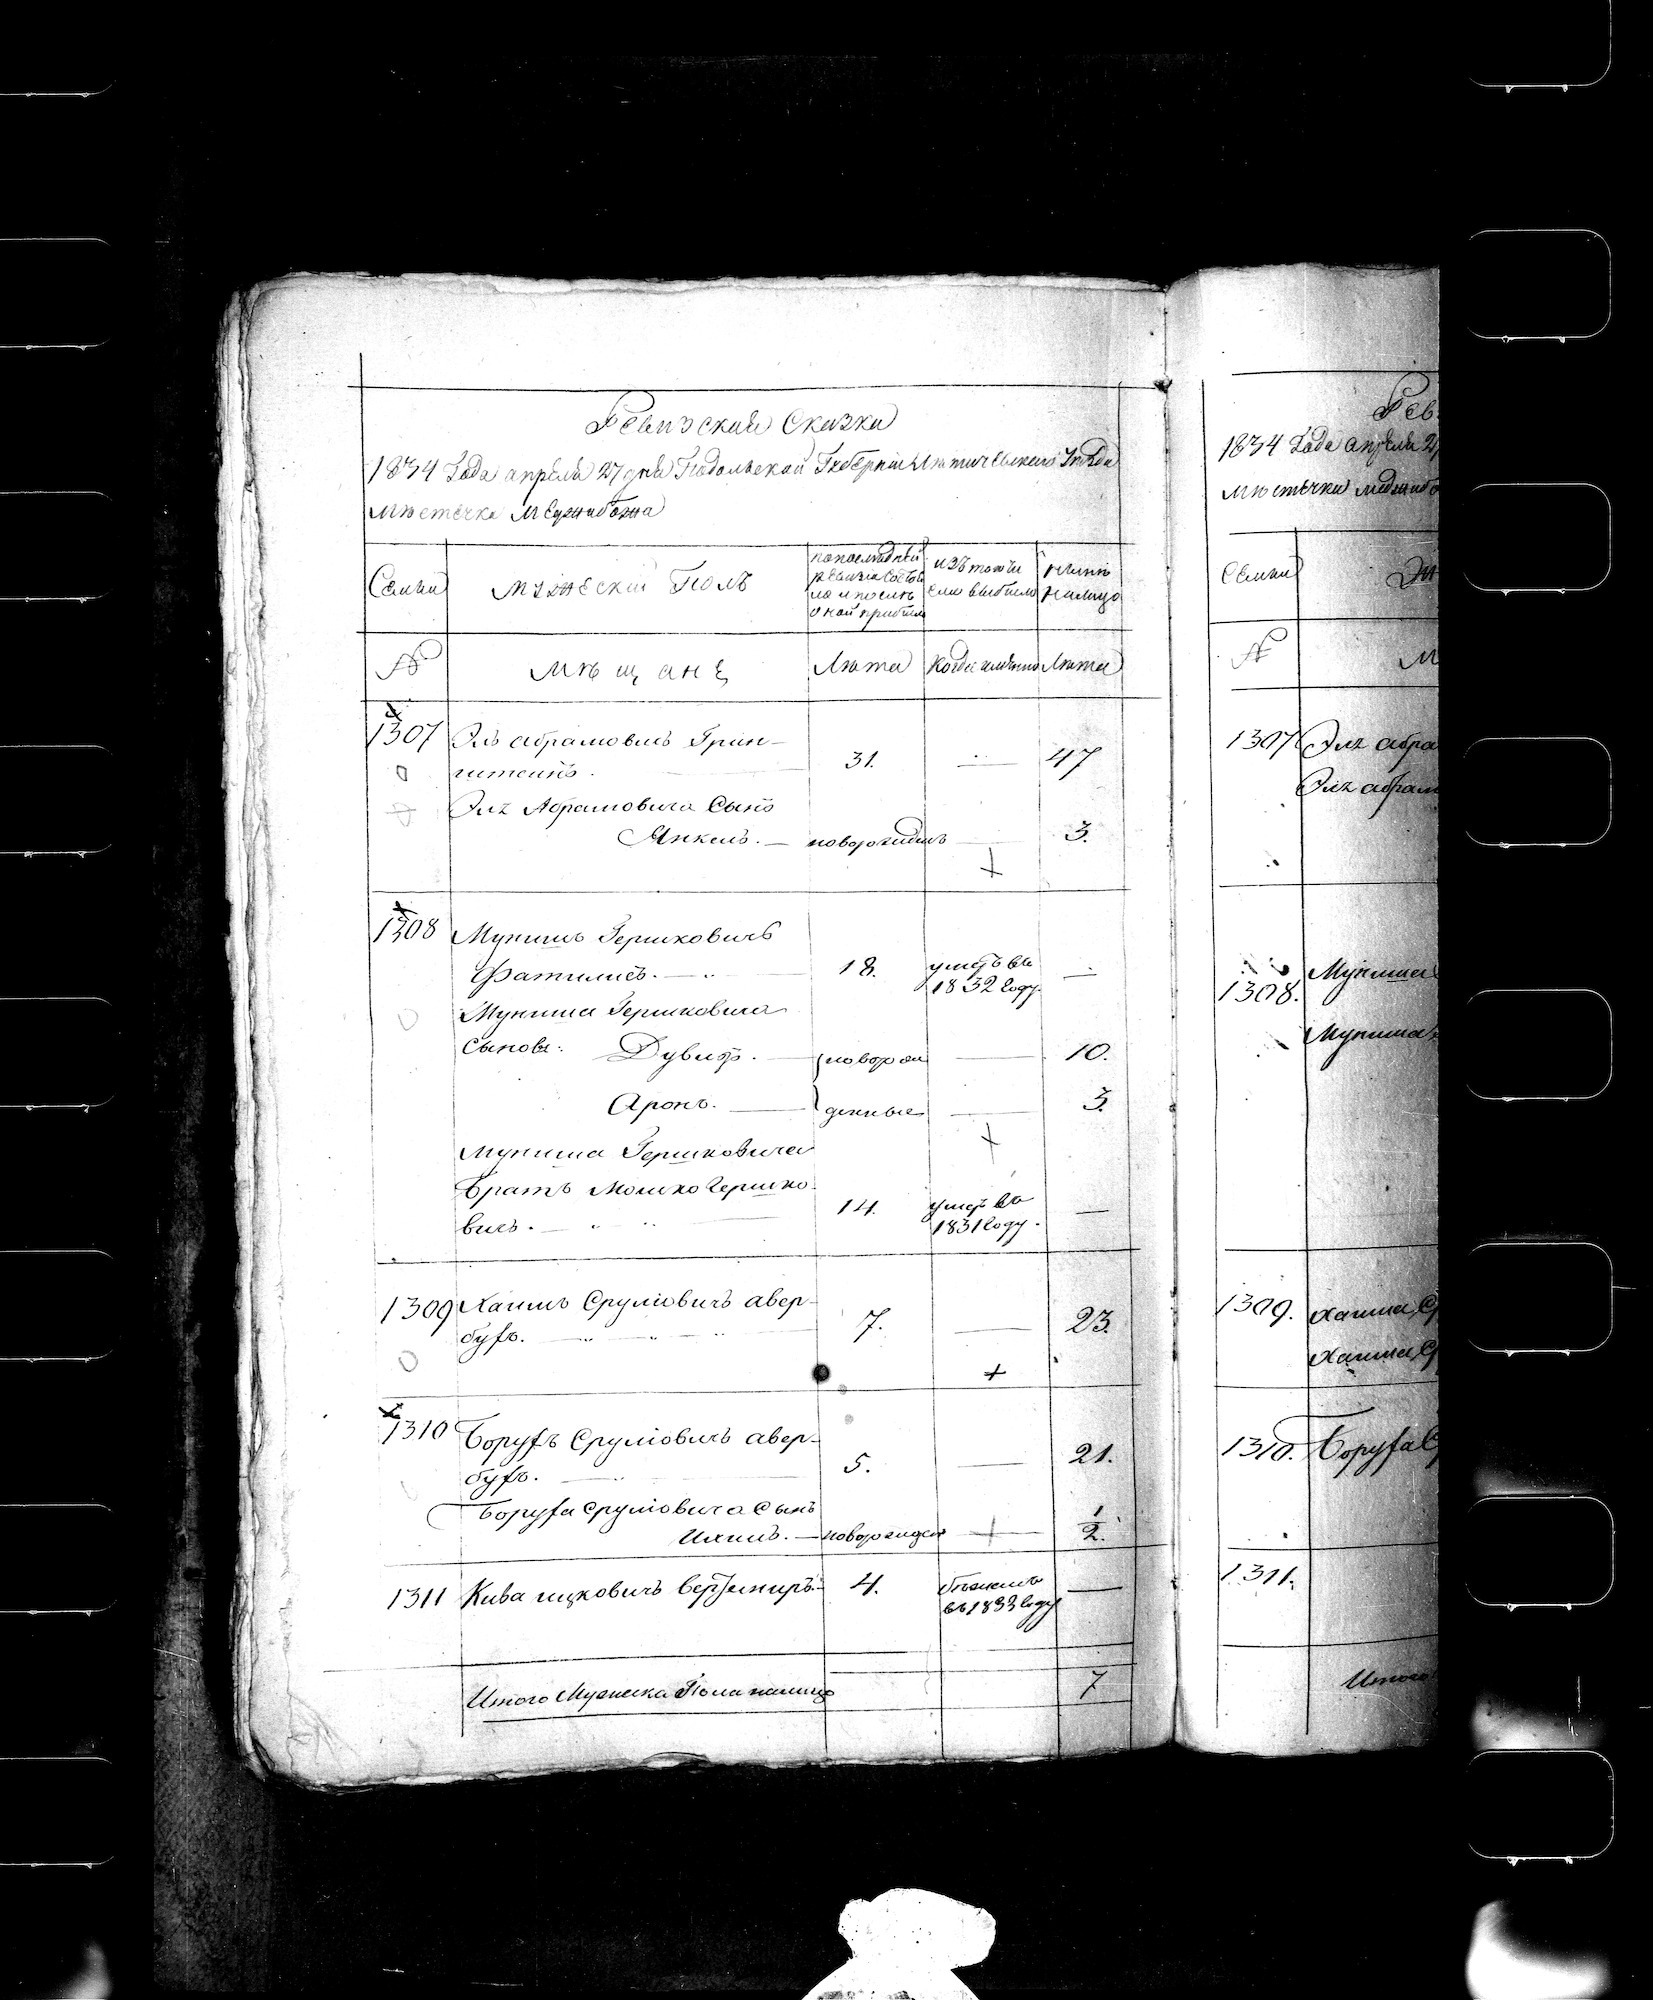 Ревизская Сказка
1834 Года апреля 27 дня Подольской Губернии Летичевского Уезда
местечка Меджибожа
Семьи
Мужеский Полъ
по последней
ревизии состоя
ло и после
оной прибыло
изъ того чи
сла выбыло
ныне
налицо
№
Мещане
Лета
Когда именно
Лета
1307
Эль абрамовичъ Грин-
штейнъ.
31.
47
Эля Абрамовича Сынъ
Янкель.
новорожден
3.
1308
Мунишъ Гершковичъ
18.
умеръ въ
1832 году.
Муниша Гершковича
Сыновья:
Дувидъ.
новорож
10.
Аронъ.
денные
3.
Муниша Гершковича
братъ Мошко Гершко-
вичъ.
14.
умеръ въ
1831 году.
1309
Хаимъ Сруліовичъ авер-
бухъ.
7.
23.
1310
Борухъ Сруліовичъ авер-
бухъ.
5.
21.
Боруха Сруліовича Сынъ
новорожден
1/2.
1311
Кива ицковичъ
4.
бежалъ
въ 1833 году
Итого Мужеска Пола налицо
7
Рев
1834 Года апреля 2
местечка меджибо
Семьи
Же
№
М
1307
Эля абра
Эля абрам
1308.
Муниша
Муниша
1309.
Хаима С
Хаима С
1310.
Боруха С
1311.
Итого